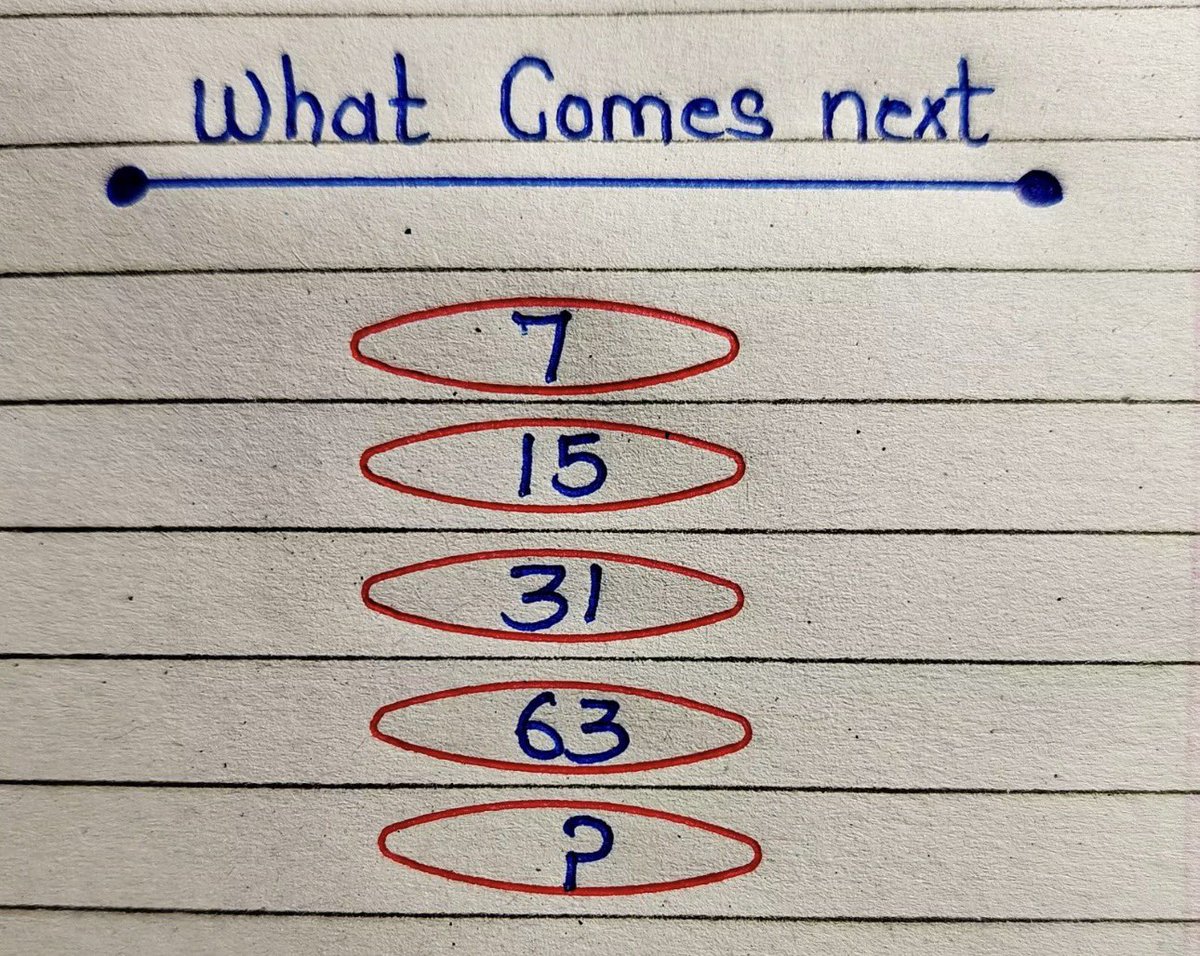 What Comes next
7
15
31
63
?